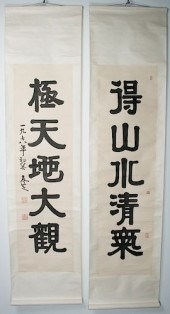 得山水清氣
極天地大觀
一九七八年